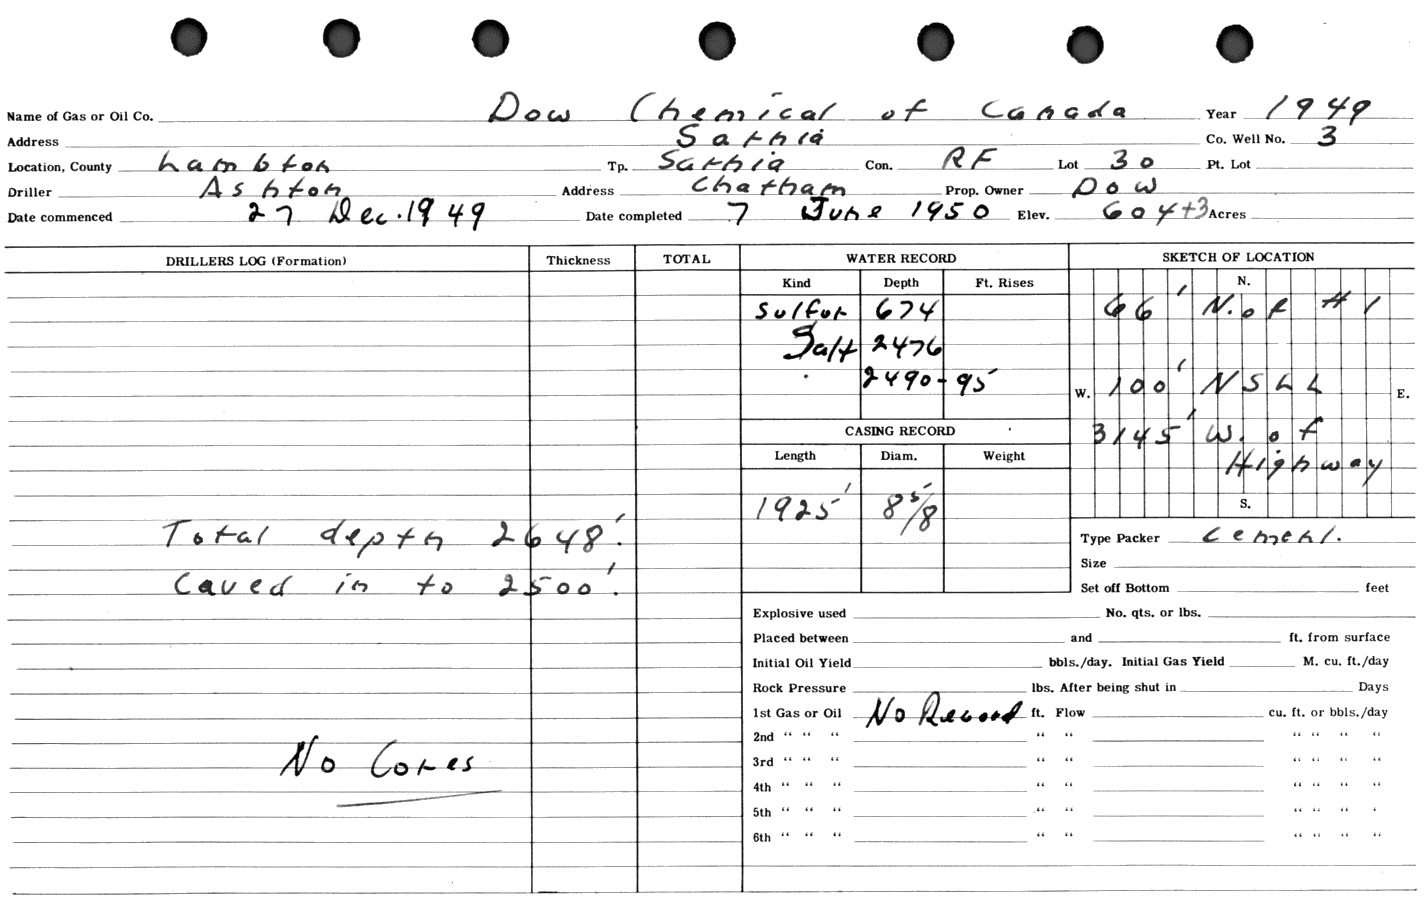 Name of Gas or Oil Co. Dow Chemical of Canada Year 1949
Address Sarnia Co. Well No. 3
Location, County Lambton Tp. Sarnia Con. RF Lot 30 Pt. Lot
Driller Ashton Address Chatham Prop. Owner Dow
Date commenced 27 Dec. 1949 Date completed 7 June 1950 Elev. 604+3 Acres
DRILLERS LOG (Formation) Thickness TOTAL WATER RECORD SKETCH OF LOCATION
Kind Depth Ft. Rises N.
Sulfur 674 66' N. of #1
Salt 2476
2490-95' W. 100' NSLL E.
CASING RECORD 3145' W. of
Length Diam. Weight Highway
1925' 8 5/8 S.
Total depth 2648'. Type Packer Cement.
Size
Caved in to 2500'. Set off Bottom feet
Explosive used No. qts. or lbs.
Placed between and ft. from surface
Initial Oil Yield bbls./day. Initial Gas Yield M. cu. ft./day
Rock Pressure lbs. After being shut in Days
1st Gas or Oil No Record ft. Flow cu. ft. or bbls./day
2nd “ “ “ “ “ “ “ “ “
No Cores 3rd “ “ “ “ “ “ “ “ “
4th “ “ “ “ “ “ “ “ “
5th “ “ “ “ “ “ “ “ “
6th “ “ “ “ “ “ “ “ “